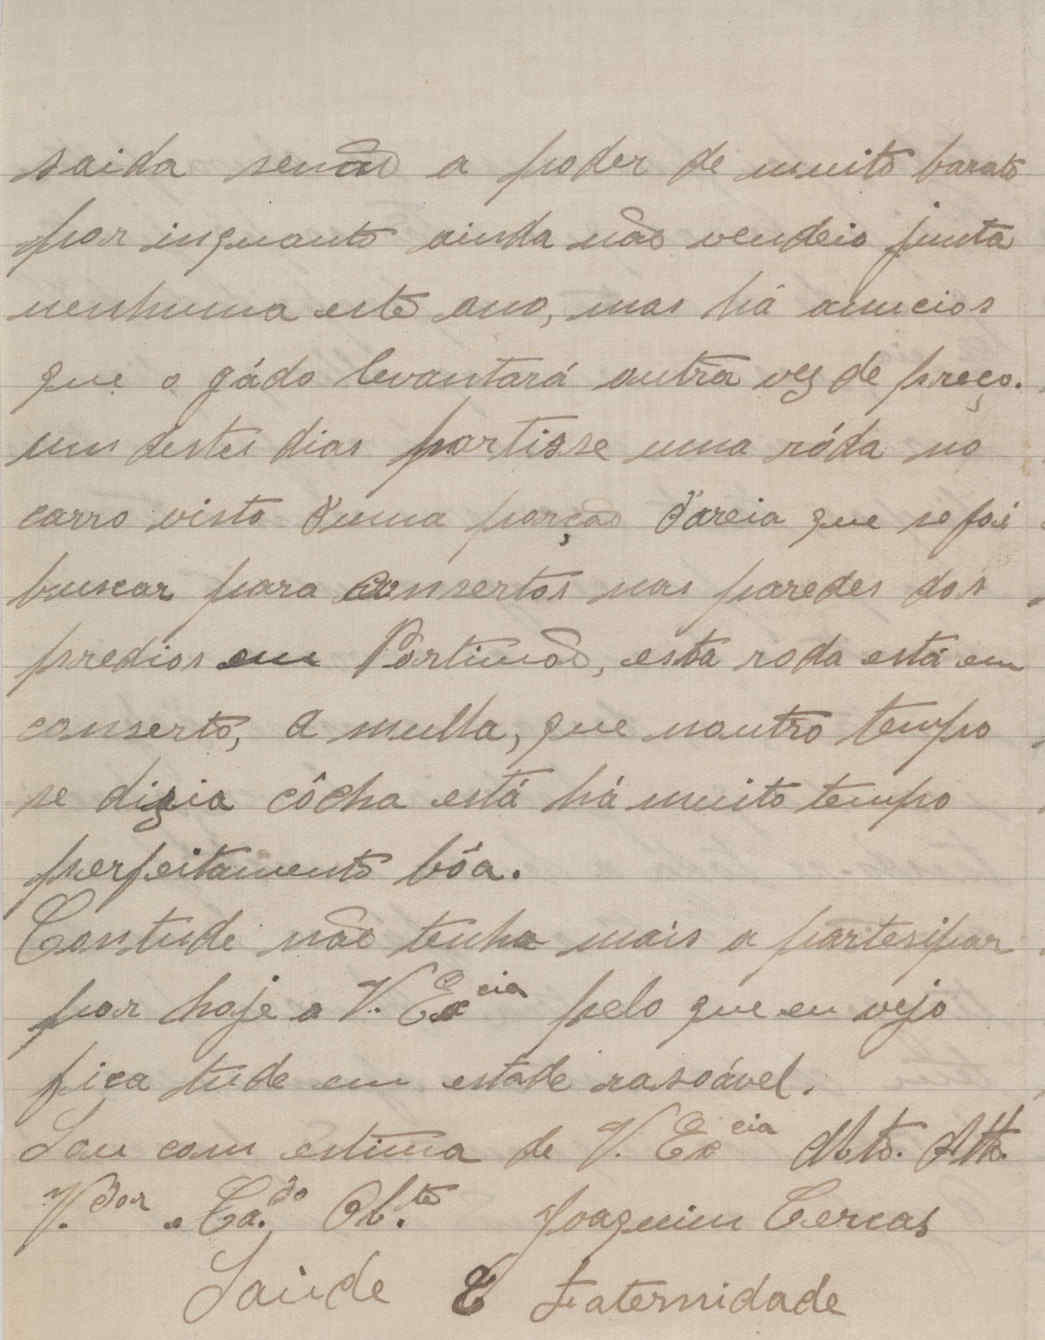 saida senão a poder de muito barato
por inquanto ainda não vendeio junta
nenhuma este ano, mas há anucios
que o gádo levantará outra vez de preço.
um destes dias partisse uma róda no
carro visto d'uma porção d'areia que se foi
buscar para consertos nas paredes dos
predios em Portimão, esta roda está em
conserto, a mulla, que noutro tempo
se dizia côcha está há muito tempo
perfeitamente bôa.
Contude não tenho mais a partesipar
por hoje a V. Excia pelo que eu vejo
fica tude em estade rasoável.
Sou com estima de V. Excia Mto. Atto.
V.dor e Ca.do Ob.te Joaquim Cercas
Saúde E Fraternidade